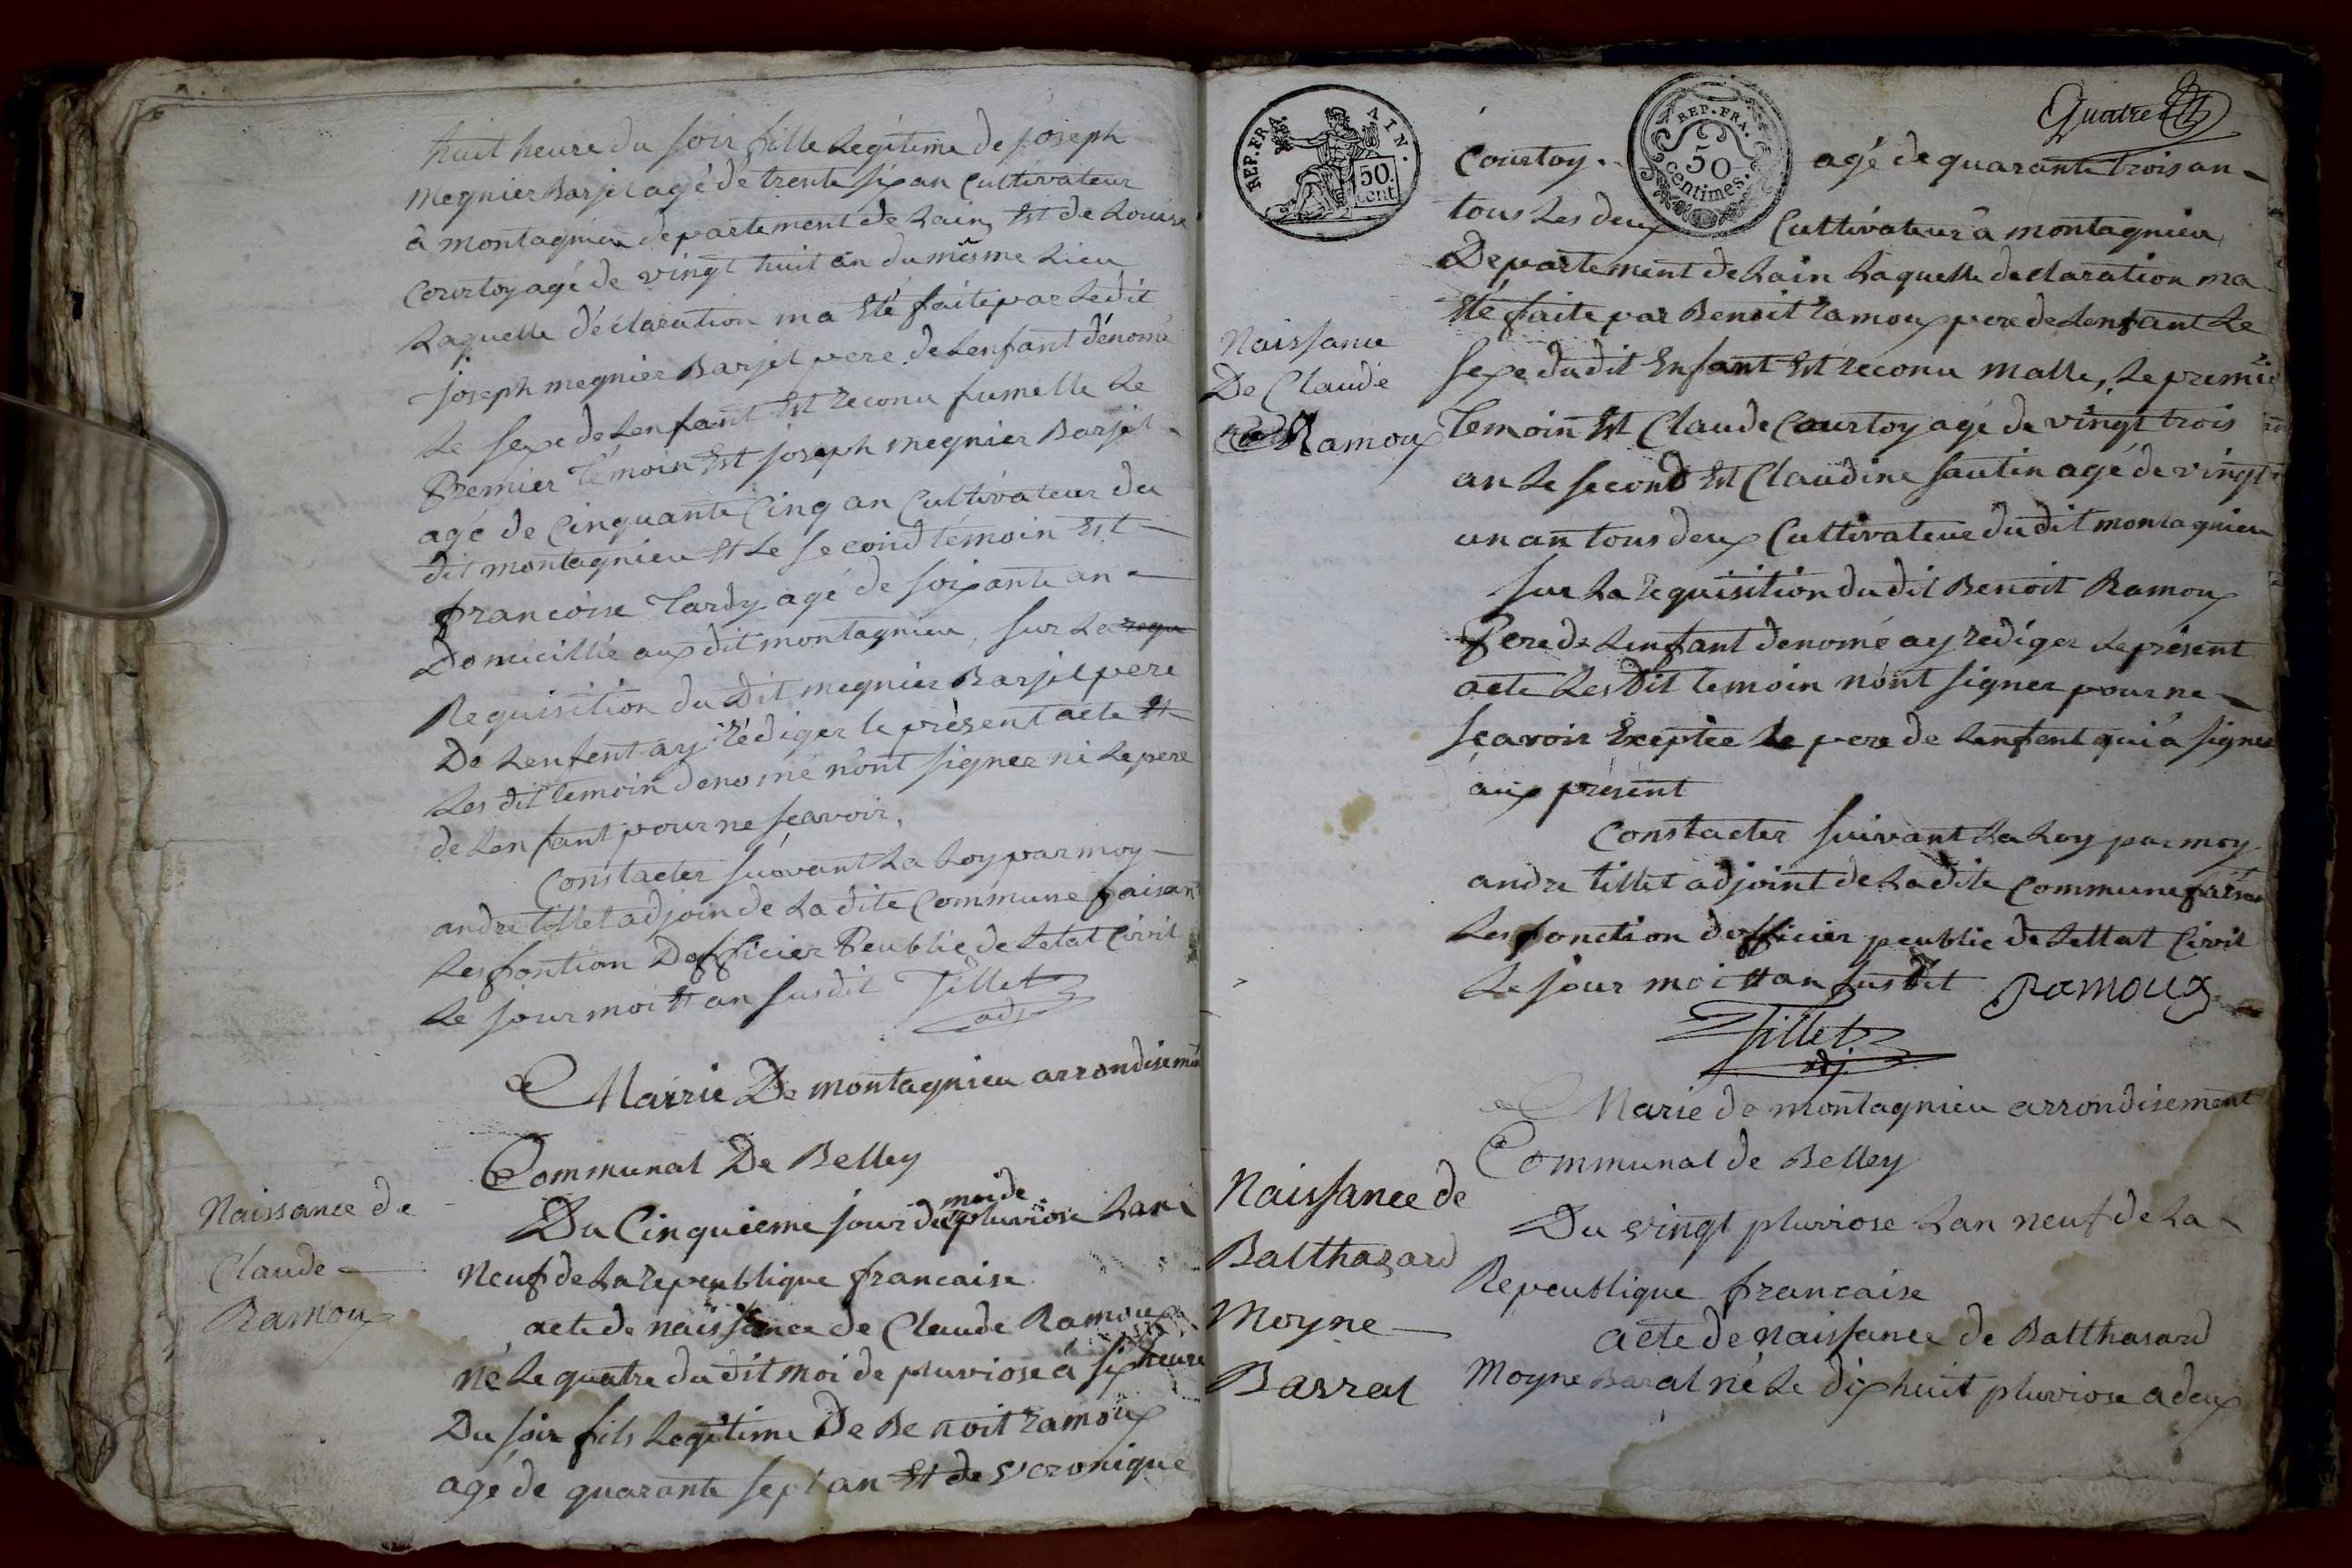 huit heure du soir fille Legitime de joseph
megnier Barjel agé de trente six an Cultivateur
à montagnieu departement de Lain, Et de Louise
Courtoy agé de vingt huit an du mesme Lieu
Laquelle déclaration ma Eté faite par Ledit
joseph megnier Barjel pere de Lenfant dénomé
Le sexe de Lenfant Est reconu fumelle Le
Premier Témoin Est joseph megnier Barjel
agé de Cinquante Cinq an Cultivateur du
dit montagnieu Et Le second témoin Est
francoise Tardy agé de soixante an
Domicillié aux dit montagnieu, sur La requ
Requisition du dit megnier Barjel pere
De Lenfent ay rédiger le présent acte Et
Les dit temoin denomé n'ont signer ni Le pere
de Lenfant pour ne sçavoir,
Constacter suivant La Loy par moy
andre tillet adjoin de La dite Commune faisant
Les fontion Dofficier Peublic de Letat Civil
Le jour moi Et an susdit Tillet
adj
Mairie De montagnieu arrondisement
Communal De Belley
Naissance de
Claude
Ramoux
moi de
Du Cinquieme jour du pluviose Lan
Neuf de La repeublique francaise
acte de naissance de Claude Ramoux
né Le quatre du dit moi de pluviose à six heure
Du soir fils Legitime De Benoit ramoux
agé de quarante sept an Et de Veronique
REP. FRA. AIN.
50.
cent.
REP. FRA.
50
centimes.
Quatre
Courtoy. agé de quarante trois an
tous Les deux Cultivateur à montagnieu
Departement de Lain Laquelle declaration ma
Eté faite par Benoit ramoux pere de Lenfant Le
Naissance
De Claude
Ramoux
sexe dudit Enfant Est reconu malle, Le premier
temoin Est Claude Courtoy agé de vingt trois
an Le second Est Claudine sautin agé de vingt
un an tous deux Cultivateur du dit montagnieu
sur La requisition du dit Benoit Ramoux
Pere de Lenfant denomé ay rediger Le présent
acte Les Dit temoin n'ont signer pour ne
sçavoir Exceptée Le pere de Lenfent qui à signer
aux présent
Constacter suivant La Loy par moy
andre tillet adjoint de Ladite Commune faisan
Les fonction dofficier peublic de Lettat Civil
Le jour moi Et an susdit Ramoux
Tillet
adj
Marie de montagnieu arrondisement
Communal de Belley
Naissance de
Balthazard
Moyne
Barral
Du vingt pluviose Lan neuf de La
Repeublique francaise
acte de Naissance de Balthasard
Moyne Baral né Le dix huit pluviose a deux